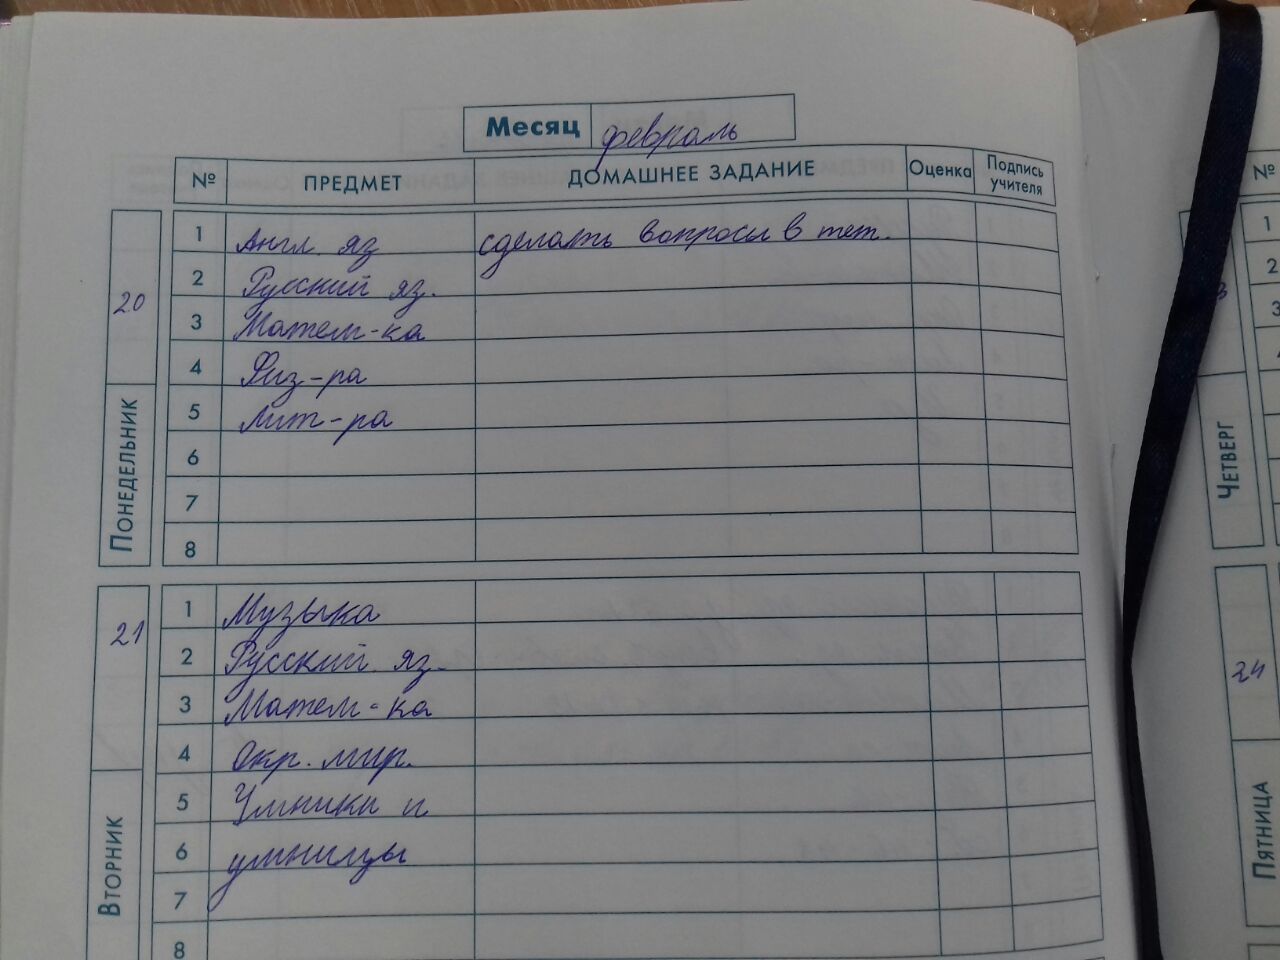 Месяц февраль
№ ПРЕДМЕТ ДОМАШНЕЕ ЗАДАНИЕ Оценка Подпись учителя
20
ПОНЕДЕЛЬНИК
1 Англ. яз сделать вопросы в тет.
2 Русский яз.
3 Матем-ка
4 Физ-ра
5 Лит-ра
6
7
8
21
ВТОРНИК
1 Музыка
2 Русский яз.
3 Матем-ка
4 Окр. мир.
5 Умники и
6 умницы
7
8
№
1
2
3
ЧЕТВЕРГ
24
ПЯТНИЦА